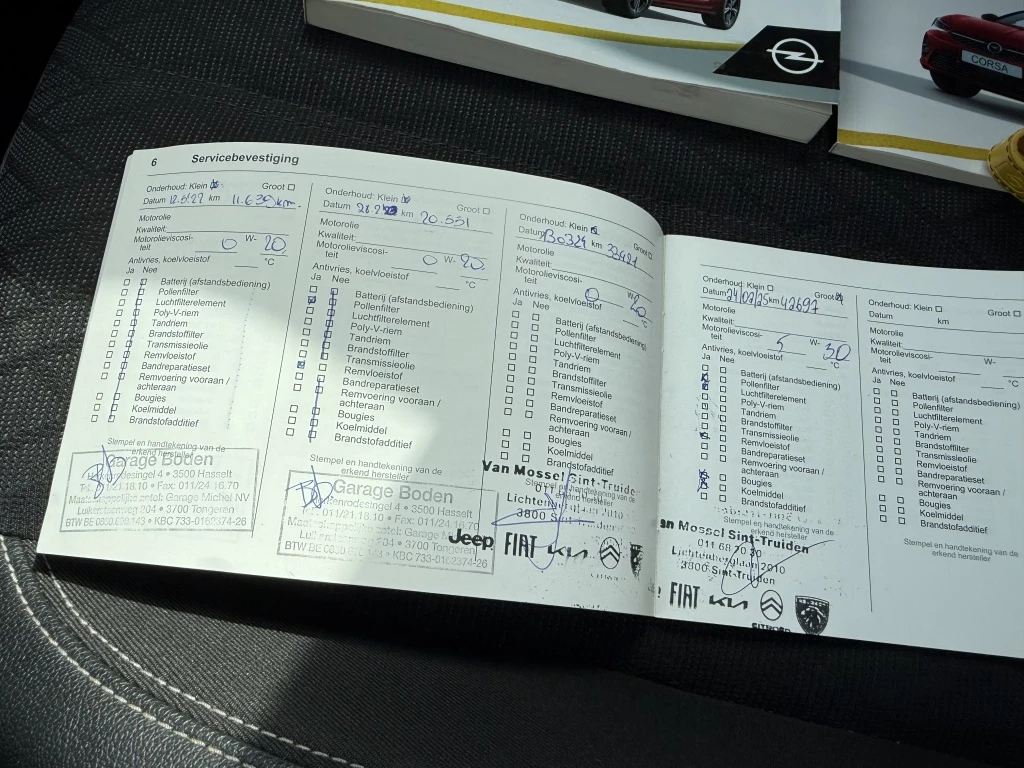 CORSA
6 Servicebevestiging
Onderhoud: Klein Groot
Datum km 11.639 km.
Motorolie
Kwaliteit:
Motorolieviscosi- 0 W- 20
teit
Antivries, koelvloeistof °C
Ja Nee
Batterij (afstandsbediening)
Pollenfilter
Luchtfilterelement
Poly-V-riem
Tandriem
Brandstoffilter
Transmissieolie
Remvloeistof
Bandreparatieset
Remvoering vooraan /
achteraan
Bougies
Koelmiddel
Brandstofadditief
Stempel en handtekening van de
erkend hersteller
Garage Boden
3500 Hasselt
Garage Michel NV
3700 Tongeren
KBC 733-0162374-26
Onderhoud: Klein Groot
Datum km 20.551
Motorolie
Kwaliteit:
Motorolieviscosi- 0 W- 20
teit
Antivries, koelvloeistof °C
Ja Nee
Batterij (afstandsbediening)
Pollenfilter
Luchtfilterelement
Poly-V-riem
Tandriem
Brandstoffilter
Transmissieolie
Remvloeistof
Bandreparatieset
Remvoering vooraan /
achteraan
Bougies
Koelmiddel
Brandstofadditief
Stempel en handtekening van de
erkend hersteller
Garage Boden
3500 Hasselt
Fax: 011/24.16.70
3700 Tongeren
KBC 733-0162374-26
Onderhoud: Klein Groot
Datum km
Motorolie
Kwaliteit:
Motorolieviscosi- 0 W 20
teit
Antivries, koelvloeistof °C
Ja Nee
Batterij (afstandsbediening)
Pollenfilter
Luchtfilterelement
Poly-V-riem
Tandriem
Brandstoffilter
Transmissieolie
Remvloeistof
Bandreparatieset
Remvoering vooraan /
achteraan
Bougies
Koelmiddel
Brandstofadditief
Stempel en handtekening van de
erkend hersteller
Van Mossel Sint-Truide
3800
Jeep FIAT KIA
Onderhoud: Klein Groot
Datum 24/02/25 km 42697
Motorolie
Kwaliteit:
Motorolieviscosi- 5 W- 30
teit
Antivries, koelvloeistof °C
Ja Nee
Batterij (afstandsbediening)
Pollenfilter
Luchtfilterelement
Poly-V-riem
Tandriem
Brandstoffilter
Transmissieolie
Remvloeistof
Bandreparatieset
Remvoering vooraan /
achteraan
Bougies
Koelmiddel
Brandstofadditief
Stempel en handtekening van de
erkend hersteller
an Mossel Sint-Truiden
011 68 20 30
Lichtenberglaan 2010
3800 Sint-Truiden
FIAT KIA
CITROËN
Onderhoud: Klein Groot
Datum km
Motorolie
Kwaliteit:
Motorolieviscosi- W-
teit
Antivries, koelvloeistof °C
Ja Nee
Batterij (afstandsbediening)
Pollenfilter
Luchtfilterelement
Poly-V-riem
Tandriem
Brandstoffilter
Transmissieolie
Remvloeistof
Bandreparatieset
Remvoering vooraan /
achteraan
Bougies
Koelmiddel
Brandstofadditief
Stempel en handtekening van de
erkend hersteller